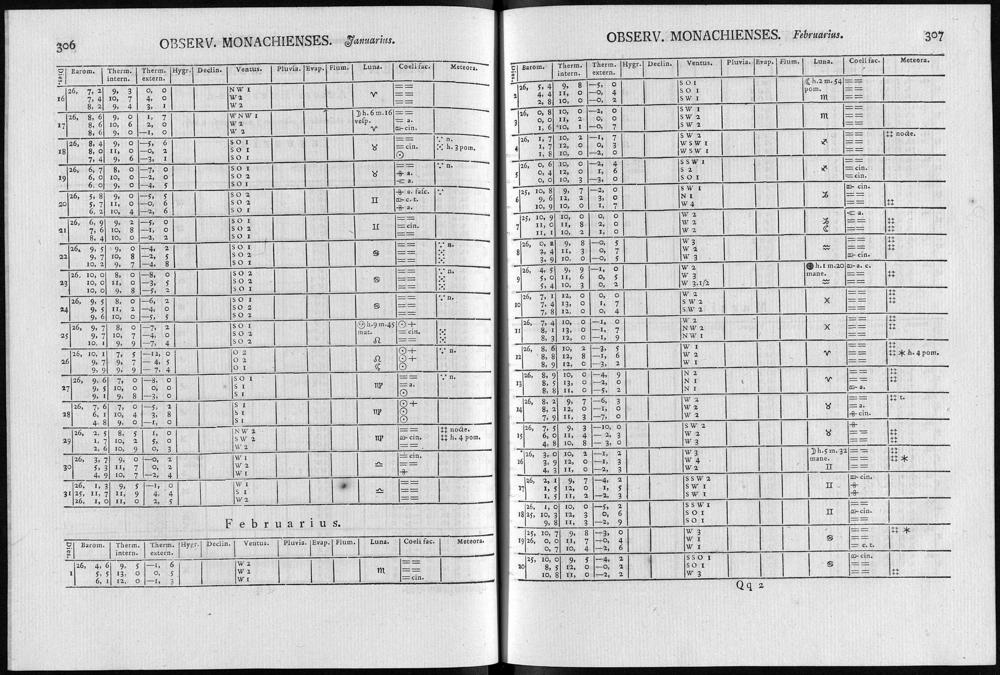 306
OBSERV. MONACHIENSES. Januarius.
Dies. Barom. Therm. intern. Therm. extern. Hygr. Declin. Ventus. Pluvia. Evap. Flum. Luna. Coeli fac. Meteora.
16 26, 7, 2 9, 3 0, 0 NW 1 ♈ ==
7, 4 10, 7 4, 0 W 2 ==
8, 2 9, 4 3, 1 W 2 ==
17 26, 8, 6 9, 0 1, 7 WNW 1 ☽ h. 6 m. 16 ==
8, 6 10, 6 2, 0 W 2 vesp. = a.
8, 6 9, 0 —1, 0 W 2 ♈ cin.
18 26, 8, 4 9, 0 —5, 6 SO 1 ♉ == n.
8, 0 11, 0 —0, 2 SO 1 = cin. h. 3 pom.
7, 4 9, 6 —3, 1 SO 1 ☉
19 26, 6, 7 8, 0 —7, 0 SO 1 ♉ == n.
6, 0 10, 0 —2, 0 SO 2 a.
6, 0 9, 0 —4, 5 SO 1 a.
20 26, 5, 8 9, 0 —5, 5 SO 2 ♊
5, 7 11, 0 —0, 6 SO 2 c. t.
6, 2 10, 4 —2, 6 SO 1 a.
21 26, 6, 9 9, 2 —5, 0 SO 1 ♊ ==
7, 6 10, 8 —1, 0 SO 2 = cin.
8, 4 10, 0 —2, 2 SO 1 ==
22 26, 9, 5 9, 0 —4, 2 SO 1 ♋ == n.
9, 7 10, 8 —2, 5 SO 1 ==
10, 2 9, 7 —4, 8 SO 2 ==
23 26, 10, 0 8, 0 —8, 0 SO 2 ♋ == n.
10, 0 11, 0 —3, 5 SO 2 ==
10, 0 9, 8 —5, 2 SO 1 ==
24 26, 9, 5 8, 0 —6, 2 SO 1 ♋ == n.
9, 5 11, 2 —4, 0 SO 2 ==
9, 6 10, 0 —5, 5 SO 2 ==
25 26, 9, 7 8, 0 —7, 2 SO 1 h. 9 m. 45 ☉ +
9, 7 10, 7 —4, 0 SO 2 mat. = cin.
10, 1 9, 9 —7, 4 SO 2 ♌ ==
26 26, 10, 1 7, 5 —12, 0 O 2 ♌ ☉ + n.
9, 7 9, 7 —4, 5 O 2 ☉ +
9, 9 9, 9 —7, 4 O 1 ☾ ☉
27 26, 9, 6 7, 0 —8, 0 SO 1 ♍ == n.
9, 5 10, 0 0, 0 S 1 = a.
9, 1 9, 8 —3, 0 S 1 ☉
28 26, 7, 6 7, 0 —5, 2 S 1 ♍ ☉ +
6, 1 10, 4 3, 8 S 1 ☉
4, 8 9, 0 —1, 0 S 1 ☉
29 26, 2, 5 8, 5 1, 0 NW 2 ♍ == nocte.
1, 7 10, 2 5, 0 SW 2 cin. h. 4 pom.
2, 6 10, 9 0, 3 W 2 ==
30 26, 3, 7 9, 0 —0, 2 W 1 ♎ = cin.
5, 3 11, 7 0, 2 W 2 ==
4, 9 10, 7 —2, 4 W 1
31 26, 1, 3 9, 5 —1, 0 W 1 ♎ ==
25, 11, 7 11, 9 4, 4 S 1 ==
26, 1, 0 11, 0 2, 5 W 2 ==
Februarius.
Dies. Barom. Therm. intern. Therm. extern. Hygr. Declin. Ventus. Pluvia. Evap. Flum. Luna. Coeli fac. Meteora.
1 26, 4, 6 9, 5 —1, 6 W 2 ♏ ==
5, 5 13, 0 0, 5 W 2 ==
6, 1 12, 0 —1, 3 W 1 = cin.
OBSERV. MONACHIENSES. Februarius.
307
Dies. Barom. Therm. intern. Therm. extern. Hygr. Declin. Ventus. Pluvia. Evap. Flum. Luna. Coeli fac. Meteora.
2 26, 5, 4 9, 8 —5, 0 SO 1 ☾ h. 2 m. 54 ==
4, 4 11, 0 —0, 4 SO 1 pom. ==
2, 8 10, 0 —0, 2 SW 1 ♏ ==
3 26, 0, 8 10, 0 —2, 0 SW 1 ♏ ==
0, 0 11, 2 0, 0 SW 2 ==
1, 6 10, 1 —0, 7 SW 2 ==
4 26, 1, 7 10, 2 —1, 7 SW 2 ♐ == nocte.
1, 7 12, 0 0, 3 WSW 1 ==
1, 8 10, 0 —2, 0 WSW 1 ==
5 26, 0, 6 10, 0 —2, 4 SSW 1 ♐ ==
0, 4 12, 0 1, 6 S 2 = cin.
0, 0 10, 3 —3, 0 SO 1 = cin.
6 25, 10, 8 9, 7 —2, 0 SW 1 ♑ cin.
9, 6 12, 2 3, 0 N 1 ==
10, 9 10, 0 1, 7 W 4 ==
7 25, 10, 9 10, 0 0, 0 W 2 ♑ a.
11, 0 11, 8 2, 0 W 2 ==
11, 1 10, 2 1, 0 W 2 ☾ ==
8 26, 0, 2 9, 8 —0, 5 W 3 ♒ ==
2, 4 11, 3 0, 7 W 2 ==
3, 9 10, 0 —0, 5 W 2 cin.
9 26, 4, 5 9, 9 —1, 0 W 2 h. 1 m. 20 a. c.
5, 0 11, 6 0, 5 W 3 mane. ==
5, 4 10, 3 0, 2 W 3.1/2 ♒ ==
10 26, 7, 1 12, 0 0, 0 W 2 ♓ ==
7, 4 13, 0 1, 7 SW 2 ==
7, 8 12, 0 0, 4 SW 2 ==
11 26, 7, 4 10, 0 —1, 0 W 2 ♓ ==
8, 1 13, 0 —1, 7 NW 2 ==
8, 3 12, 0 —1, 9 NW 1 ==
12 26, 8, 6 10, 2 —3, 5 W 1 ♈ ==
8, 8 12, 8 —1, 6 W 2 == h. 4 pom.
8, 8 11, 3 —3, 2 W 1 ==
13 26, 8, 9 10, 0 —4, 9 N 2 ♈ ==
8, 5 13, 0 —2, 0 N 1 ==
8, 8 11, 0 —5, 2 N 1 a.
14 26, 8, 2 9, 7 —6, 3 W 2 ♉ == t.
8, 2 12, 0 —1, 0 W 2 = a.
7, 9 11, 3 —7, 0 W 2 cin.
15 26, 7, 5 9, 3 —10, 0 SW 2 ♉
6, 0 11, 4 —2, 3 W 2 ==
4, 8 10, 8 —3, 0 W 3 ==
16 26, 3, 0 10, 2 —1, 2 W 3 ☽ h. 5 m. 32 ==
3, 9 12, 0 —1, 3 W 4 mane. ==
4, 3 11, 0 —2, 3 W 2 ♊ ==
17 26, 2, 1 9, 7 —4, 2 SSW 2 ♊ cin.
1, 5 12, 0 1, 5 SW 1
1, 5 11, 2 —2, 3 SW 1
18 26, 1, 0 10, 0 —5, 2 SSW 1 ♊ ==
25, 10, 3 12, 3 0, 6 SO 1 cin.
9, 8 11, 3 —2, 9 SO 1 ==
19 25, 10, 7 9, 8 —3, 0 W 3 ♋ ==
26, 0, 0 11, 7 —0, 4 W 1 ==
0, 7 10, 4 —2, 6 W 1 = c. t.
20 25, 10, 0 9, 5 —4, 2 SSO 1 ♋ cin.
8, 5 12, 0 —0, 2 SO 1 ==
10, 8 11, 0 —2, 2 W 3 ==
Qq 2